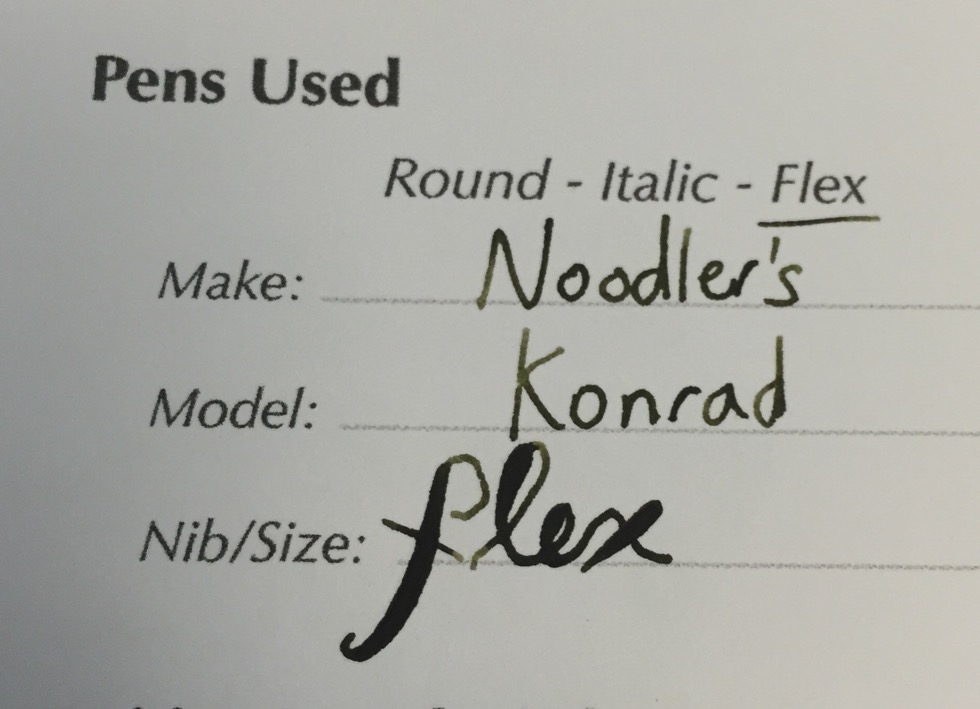 Pens Used
Round - Italic - Flex
Make: Noodler's
Model: Konrad
Nib/Size: flex